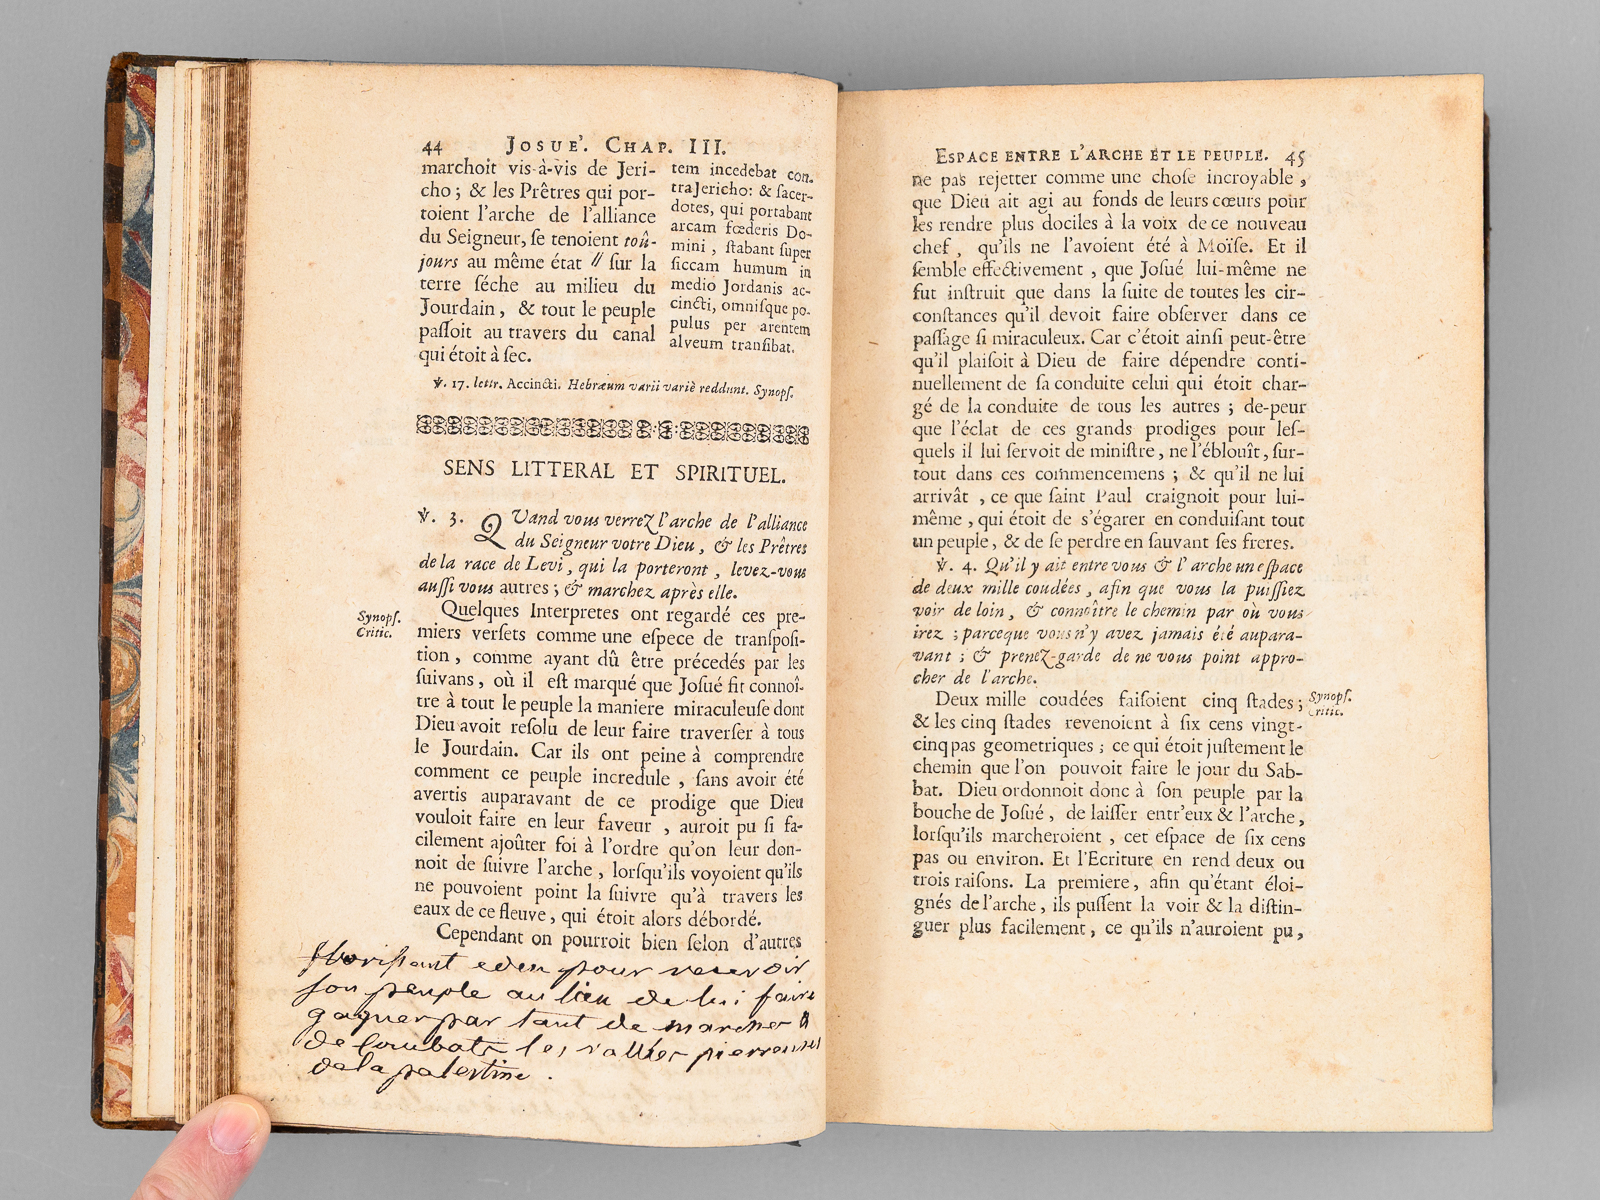 44 JOSUE'. CHAP. III.
marchoit vis-à-vis de Jeri-
cho ; & les Prêtres qui por-
toient l'arche de l'alliance
du Seigneur, ſe tenoient toû-
jours au même état // ſur la
terre ſéche au milieu du
Jourdain, & tout le peuple
paſſoit au travers du canal
qui étoit à ſec.
tem incedebat con-
tra Jericho: & ſacer-
dotes, qui portabant
arcam fœderis Do-
mini, ſtabant ſuper
ſiccam humum in
medio Jordanis ac-
cincti, omniſque po-
pulus per arentem
alveum tranſibat.
℣. 17. lettr. Accincti. Hebræum varii variè reddunt. Synopſ.
SENS LITTERAL ET SPIRITUEL.
℣. 3. QUand vous verrez l'arche de l'alliance
du Seigneur votre Dieu, & les Prêtres
de la race de Levi, qui la porteront, levez-vous
auſſi vous autres ; & marchez après elle.
Synopſ.
Critic.
Quelques Interpretes ont regardé ces pre-
miers verſets comme une eſpece de tranſpoſi-
tion, comme ayant dû être précedés par les
ſuivans, où il eſt marqué que Joſué fit connoî-
tre à tout le peuple la maniere miraculeuſe dont
Dieu avoit reſolu de leur faire traverſer à tous
le Jourdain. Car ils ont peine à comprendre
comment ce peuple incredule, ſans avoir été
avertis auparavant de ce prodige que Dieu
vouloit faire en leur faveur, auroit pu ſi fa-
cilement ajoûter foi à l'ordre qu'on leur don-
noit de ſuivre l'arche, lorſqu'ils voyoient qu'ils
ne pouvoient point la ſuivre qu'à travers les
eaux de ce fleuve, qui étoit alors débordé.
Cependant on pourroit bien ſelon d'autres
eden pour recevoir
son peuple au lieu de lui faire
gagner par tant de marches &
de combats les vallées pierreuses
de la palestine.
ESPACE ENTRE L'ARCHE ET LE PEUPLE. 45
ne pas rejetter comme une choſe incroyable,
que Dieu ait agi au fonds de leurs cœurs pour
les rendre plus dociles à la voix de ce nouveau
chef, qu'ils ne l'avoient été à Moïſe. Et il
ſemble effectivement, que Joſué lui-même ne
fut inſtruit que dans la ſuite de toutes les cir-
conſtances qu'il devoit faire obſerver dans ce
paſſage ſi miraculeux. Car c'étoit ainſi peut-être
qu'il plaiſoit à Dieu de faire dépendre conti-
nuellement de ſa conduite celui qui étoit char-
gé de la conduite de tous les autres ; de-peur
que l'éclat de ces grands prodiges pour leſ-
quels il lui ſervoit de miniſtre, ne l'éblouît, ſur-
tout dans ces commencemens ; & qu'il ne lui
arrivât, ce que ſaint Paul craignoit pour lui-
même, qui étoit de s'égarer en conduiſant tout
un peuple, & de ſe perdre en ſauvant ſes freres.
℣. 4. Qu'il y ait entre vous & l'arche un eſpace
de deux mille coudées, afin que vous la puiſſiez
voir de loin, & connoître le chemin par où vous
irez ; parceque vous n'y avez jamais été aupara-
vant ; & prenez-garde de ne vous point appro-
cher de l'arche.
Deux mille coudées faiſoient cinq ſtades ;
Synopſ.
Critic.
& les cinq ſtades revenoient à ſix cens vingt-
cinq pas geometriques ; ce qui étoit juſtement le
chemin que l'on pouvoit faire le jour du Sab-
bat. Dieu ordonnoit donc à ſon peuple par la
bouche de Joſué, de laiſſer entr'eux & l'arche,
lorſqu'ils marcheroient, cet eſpace de ſix cens
pas ou environ. Et l'Ecriture en rend deux ou
trois raiſons. La premiere, afin qu'étant éloi-
gnés de l'arche, ils puſſent la voir & la diſtin-
guer plus facilement, ce qu'ils n'auroient pu,